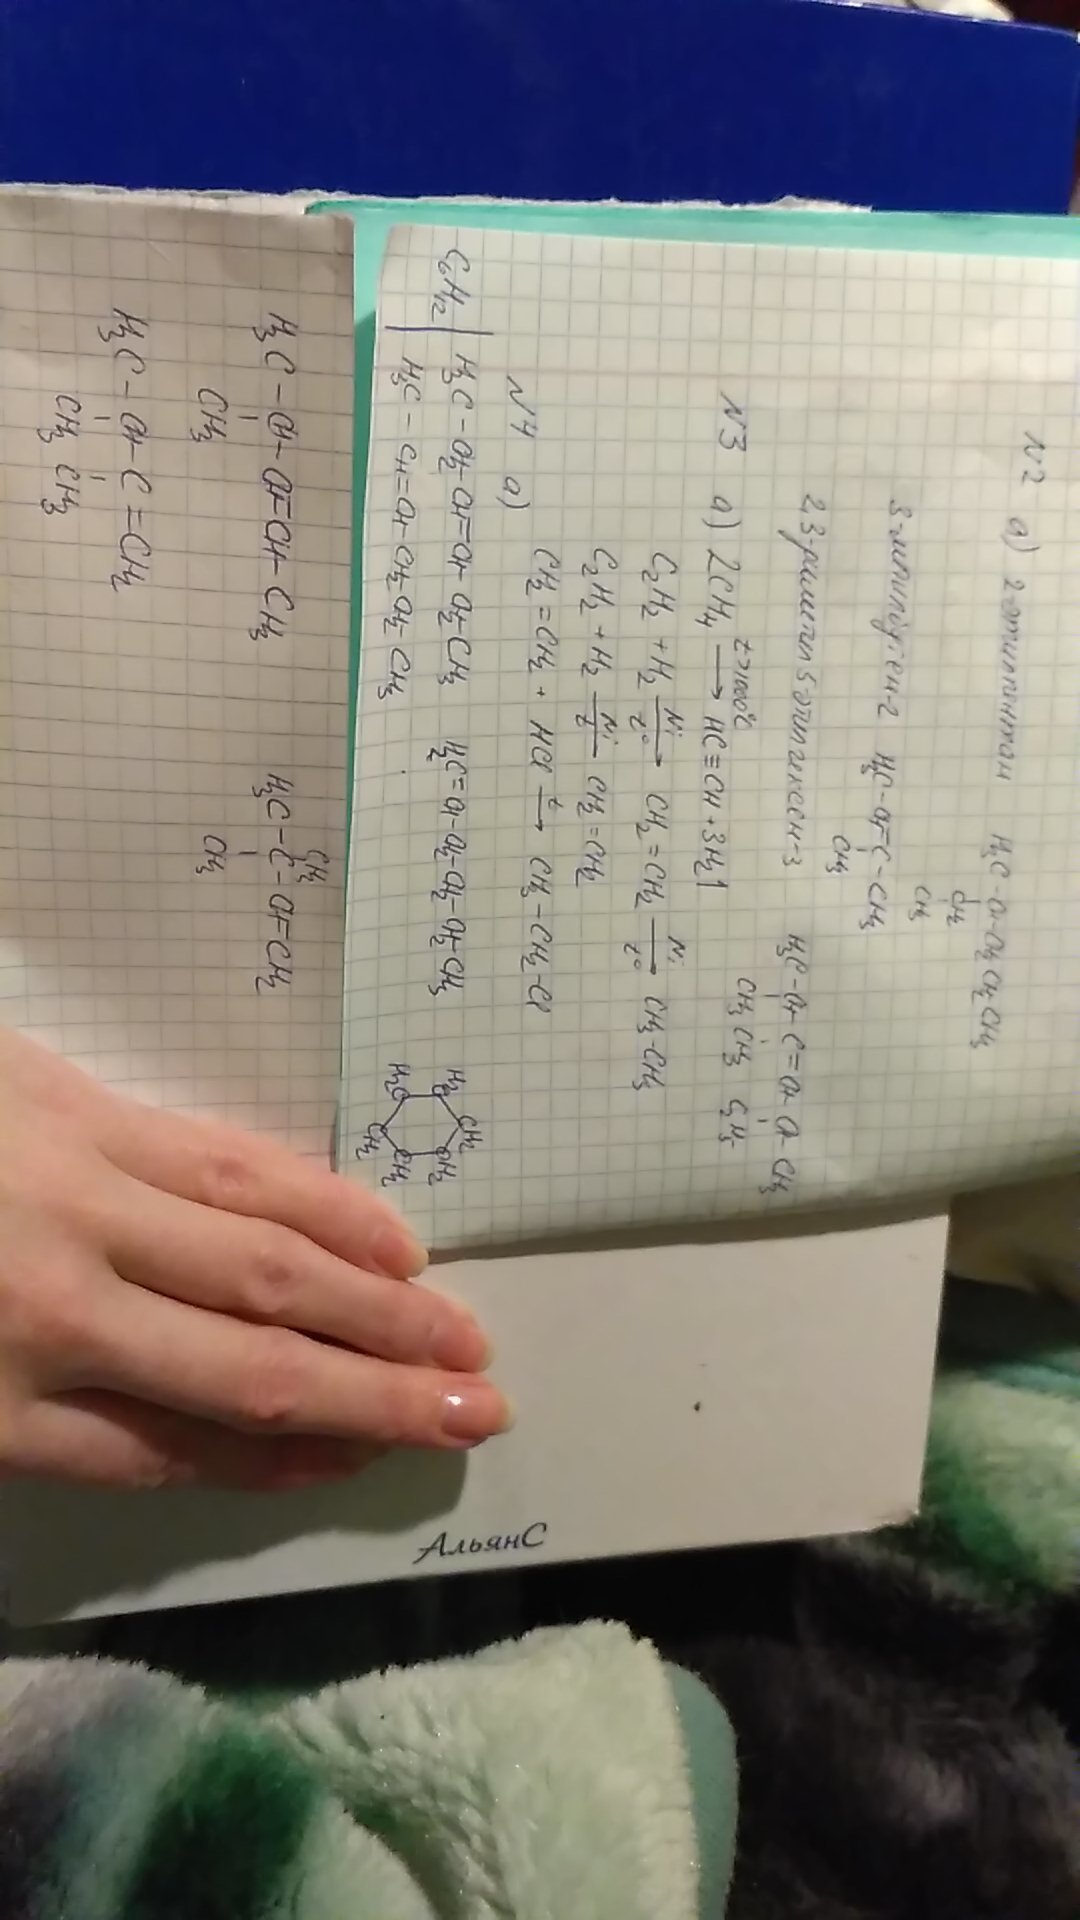 N2 а) 2-этилпентан H3C-CH-CH2 CH2 CH3
CH2
CH3
3-метилбутен-2 H3C-CH=C-CH3
CH3
2,3диметил 5этилгексен-3 H3C-CH-C=CH-CH-CH3
CH3 CH3 C2H5
N3 а) 2CH4 t>1000°C → HC≡CH + 3H2↑
C2H2 + H2 Ni t° → CH2=CH2 Ni t° → CH3-CH3
C2H2 + H2 Ni t → CH2=CH2
CH2=CH2 + HCl t → CH3-CH2-Cl
N4 а)
C6H12 | H3C-CH2-CH=CH-CH2-CH3 H2C=CH-CH2-CH2-CH2-CH3
H3C-CH=CH-CH2-CH2-CH3
H2C CH2 CH2
H2C CH2 CH2
CH3
H3C-CH-CH=CH-CH3 H3C-C-CH=CH2
CH3 CH3
H3C-CH-C=CH2
CH3 CH3
АльянС